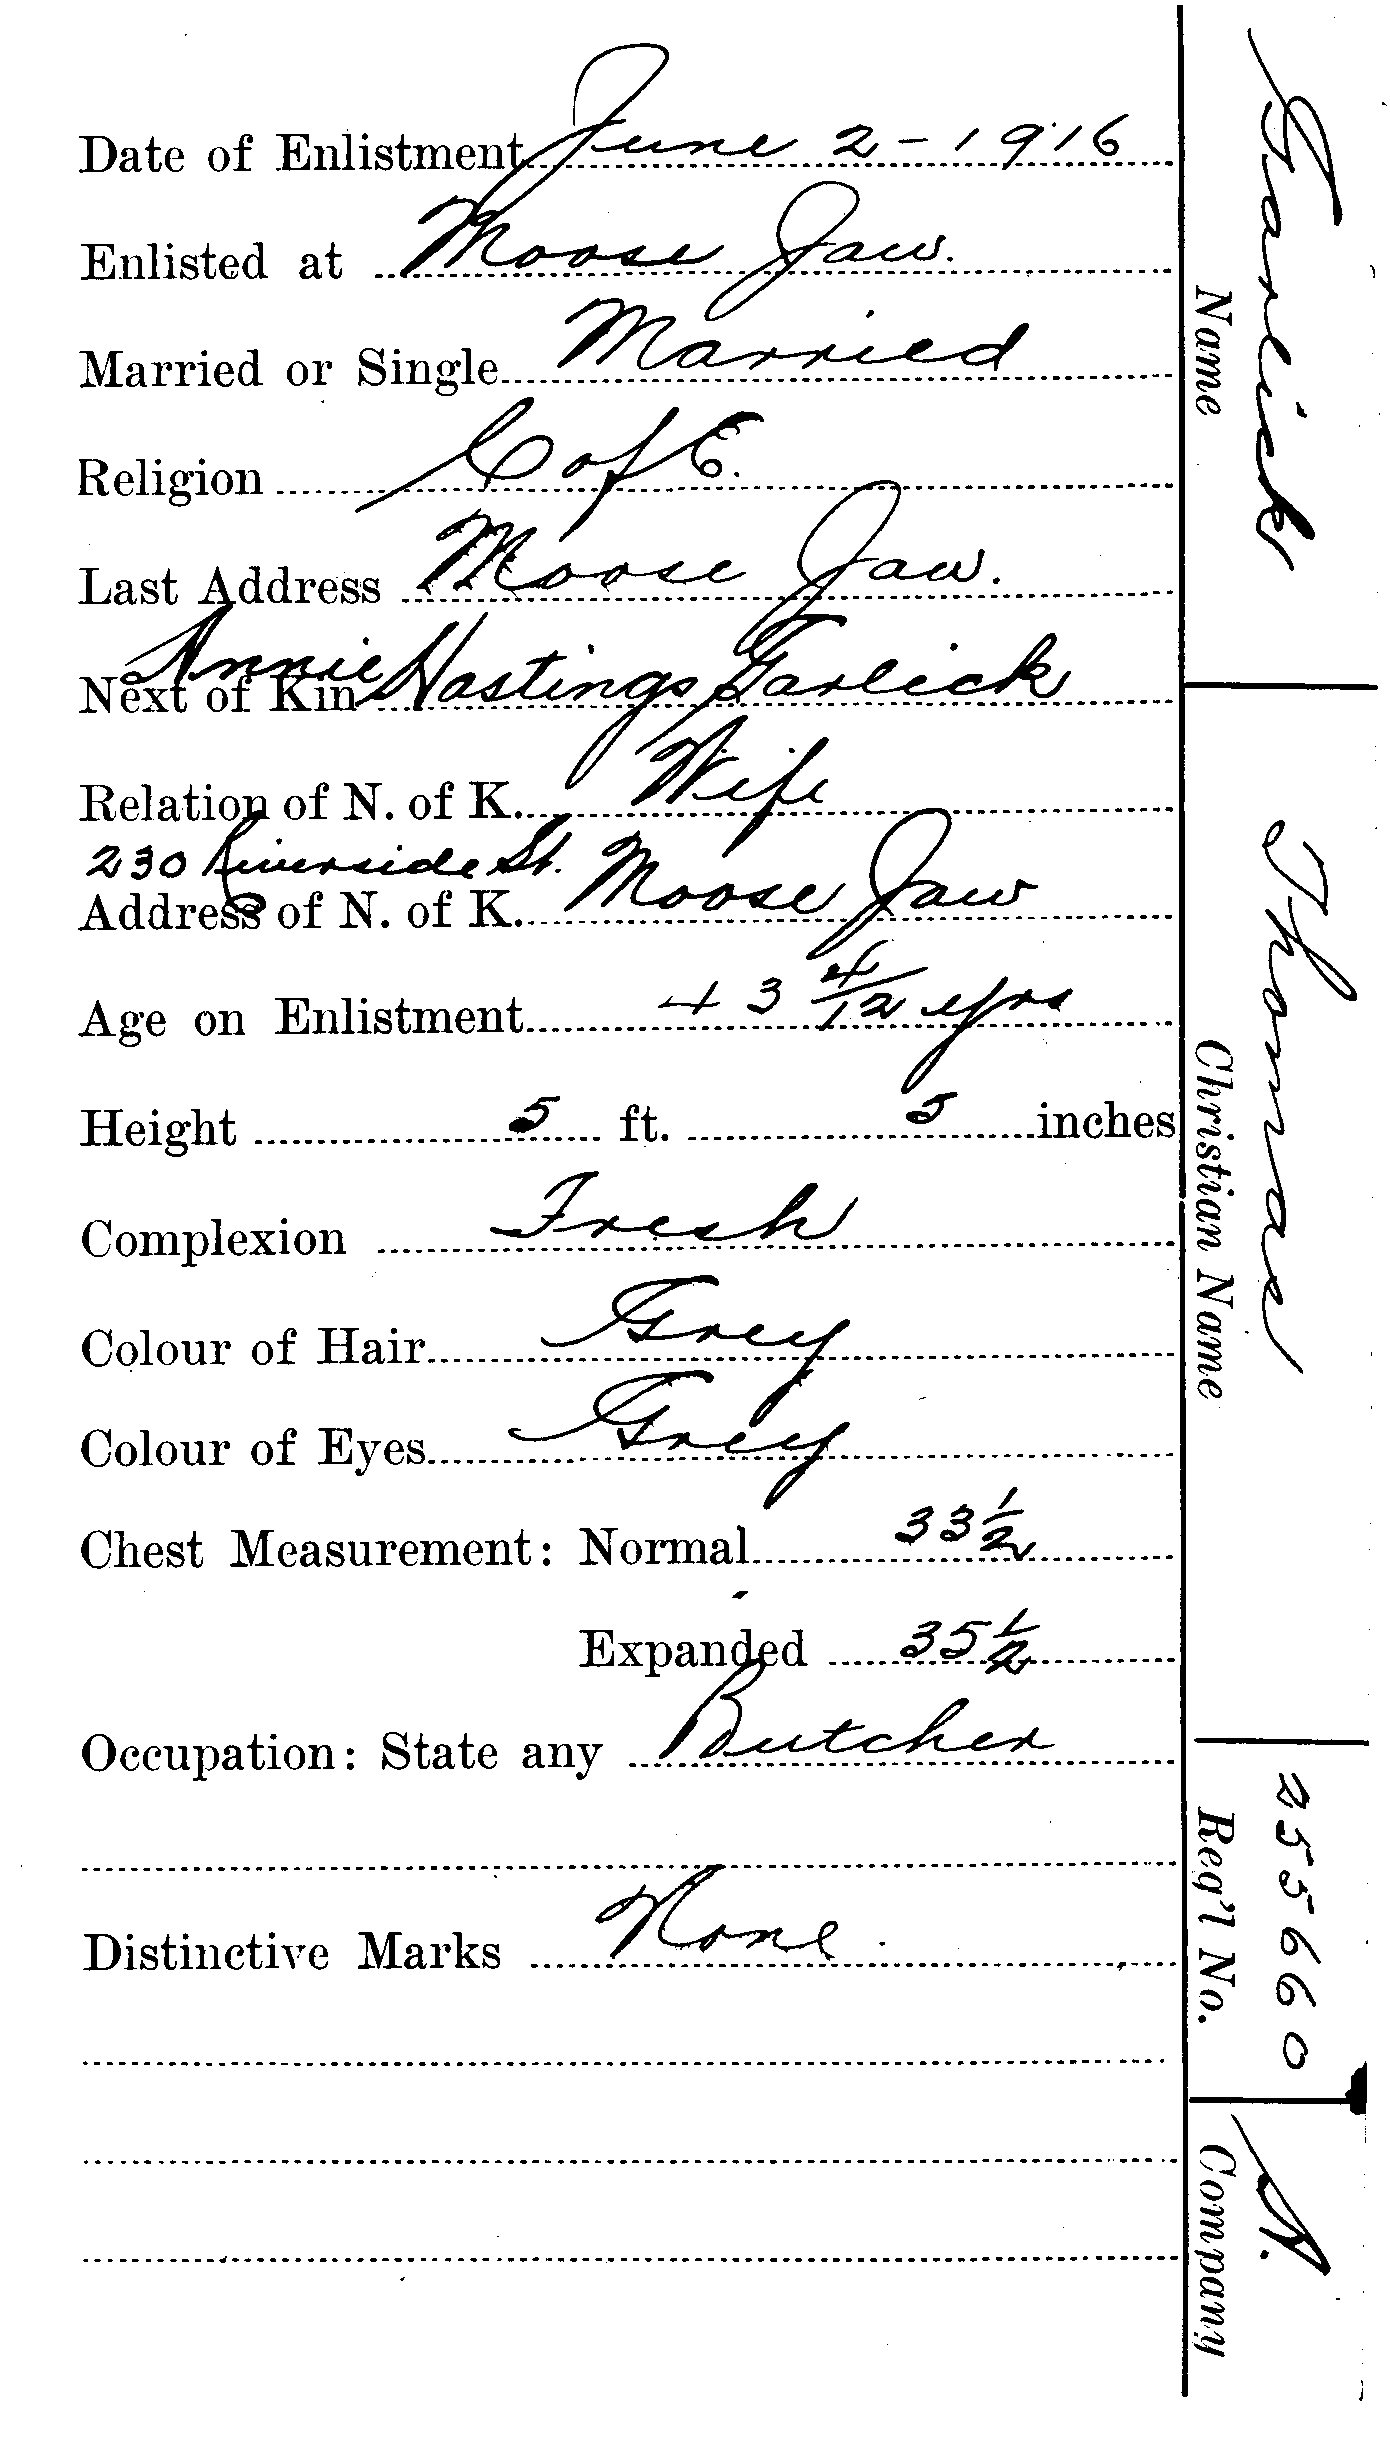 Date of Enlistment June 2 - 1916
Enlisted at Moose Jaw.
Married or Single Married
Religion C of E.
Last Address Moose Jaw.
Next of Kin Annie Hastings Garlick
Relation of N. of K. Wife
230 Riverside St.
Address of N. of K. Moose Jaw
Age on Enlistment 43 4/12 yrs
Height 5 ft. 5 inches
Complexion Fresh
Colour of Hair Grey
Colour of Eyes Grey
Chest Measurement: Normal 33 1/2
Expanded 35 1/2
Occupation: State any Butcher
Distinctive Marks None
Garlick
Name
Thomas
Christian Name
255660
Reg'l No.
A.
Company